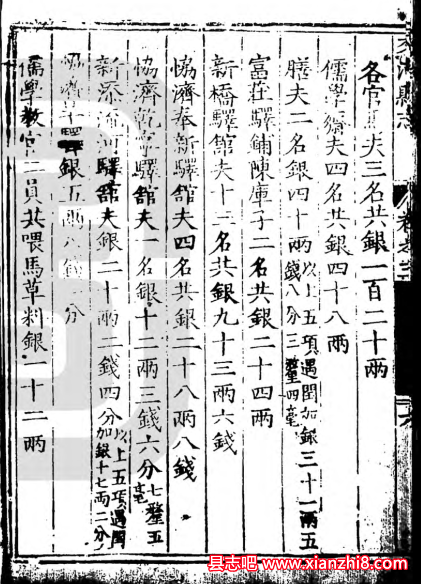 各官馬夫三名共銀一百二十兩
儒學齋夫四名共銀四十八兩
膳夫二名銀四十兩以上五項遇閏加銀三十一兩五錢八分三釐四毫
富莊驛鋪陳庫子二名共銀二十四兩
新橋驛舘夫十二名共銀九十三兩六錢
恊濟奉新驛舘夫四名共銀二十八兩八錢
恊濟乾寧驛舘夫一名銀十二兩三錢六分七釐五毫
新添流河驛舘夫銀二十兩二錢四分以上五項遇閏加銀十七兩二分
恊濟 驛銀五兩 錢 分
儒學教官二員共喂馬草料銀一十二兩
縣志
县志吧 www.xianzhi8.com